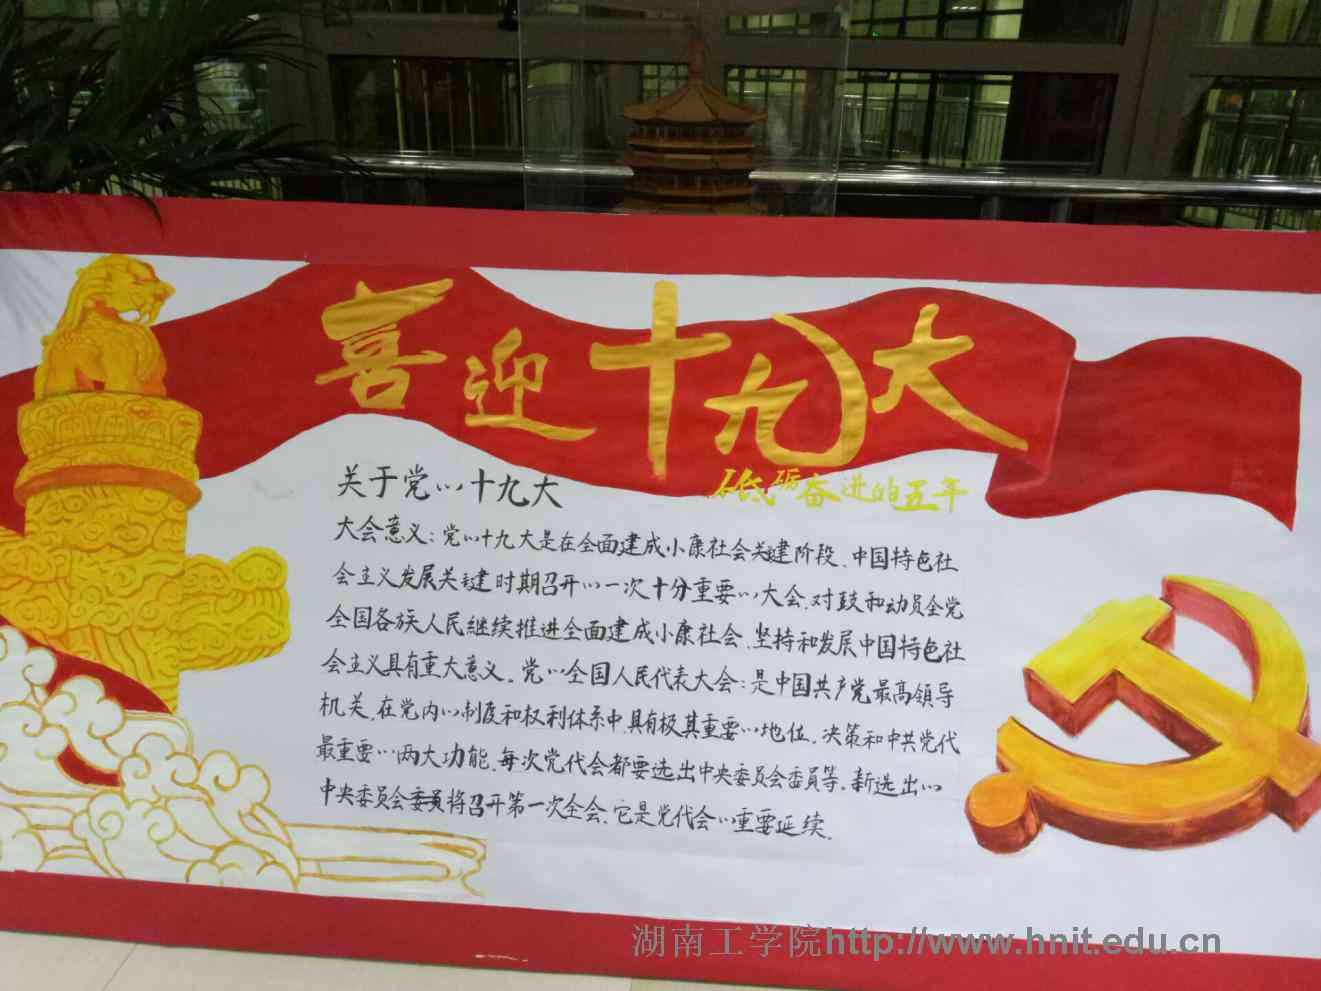 喜迎十九大
砥砺奋进的五年
关于党的十九大
大会意义：党的十九大是在全面建成小康社会关建阶段、中国特色社
会主义发展关建时期召开的一次十分重要的大会，对鼓和动员全党
全国各族人民继续推进全面建成小康社会、坚持和发展中国特色社
会主义具有重大意义。党的全国人民代表大会：是中国共产党最高領导
机关，在党内的制度和权利体系中，具有极其重要的地位。决策和中共党代
最重要的两大功能，每次党代会都要选出中央委员会委員等。新选出的
中央委员会委员将召开第一次全会，它是党代会的重要延续。
湖南工学院http://www.hnit.edu.cn